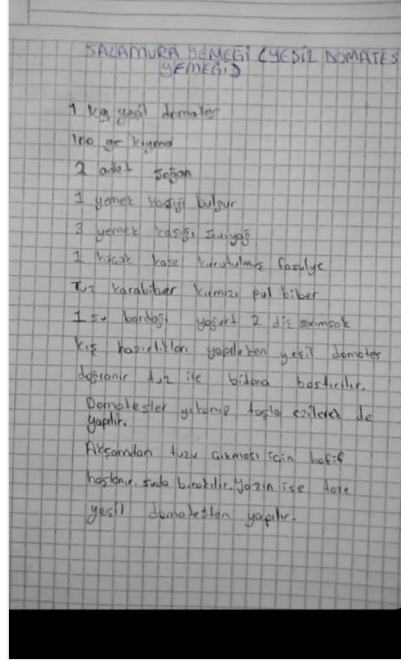 SALAMURA YEMEĞİ (YEŞİL DOMATES
YEMEĞİ)
1 kg yeşil domates
100 gr kıyma
2 adet soğan
1 yemek kaşığı bulgur
3 yemek kaşığı sıvıyağ
1 küçük kase kurutulmuş fasulye
Tuz karabiber kırmızı pul biber
1 su bardağı yoğurt 2 diş sarımsak
Kış hazırlıkları yapılırken yeşil domates
doğranır tuz ile bidona bastırılır.
Domatesler yıkanıp taşla ezilerek de
yapılır.
Akşamdan tuzu çıkması için hafif
haşlanır, suda bırakılır. Yazın ise taze
yeşil domatesten yapılır.